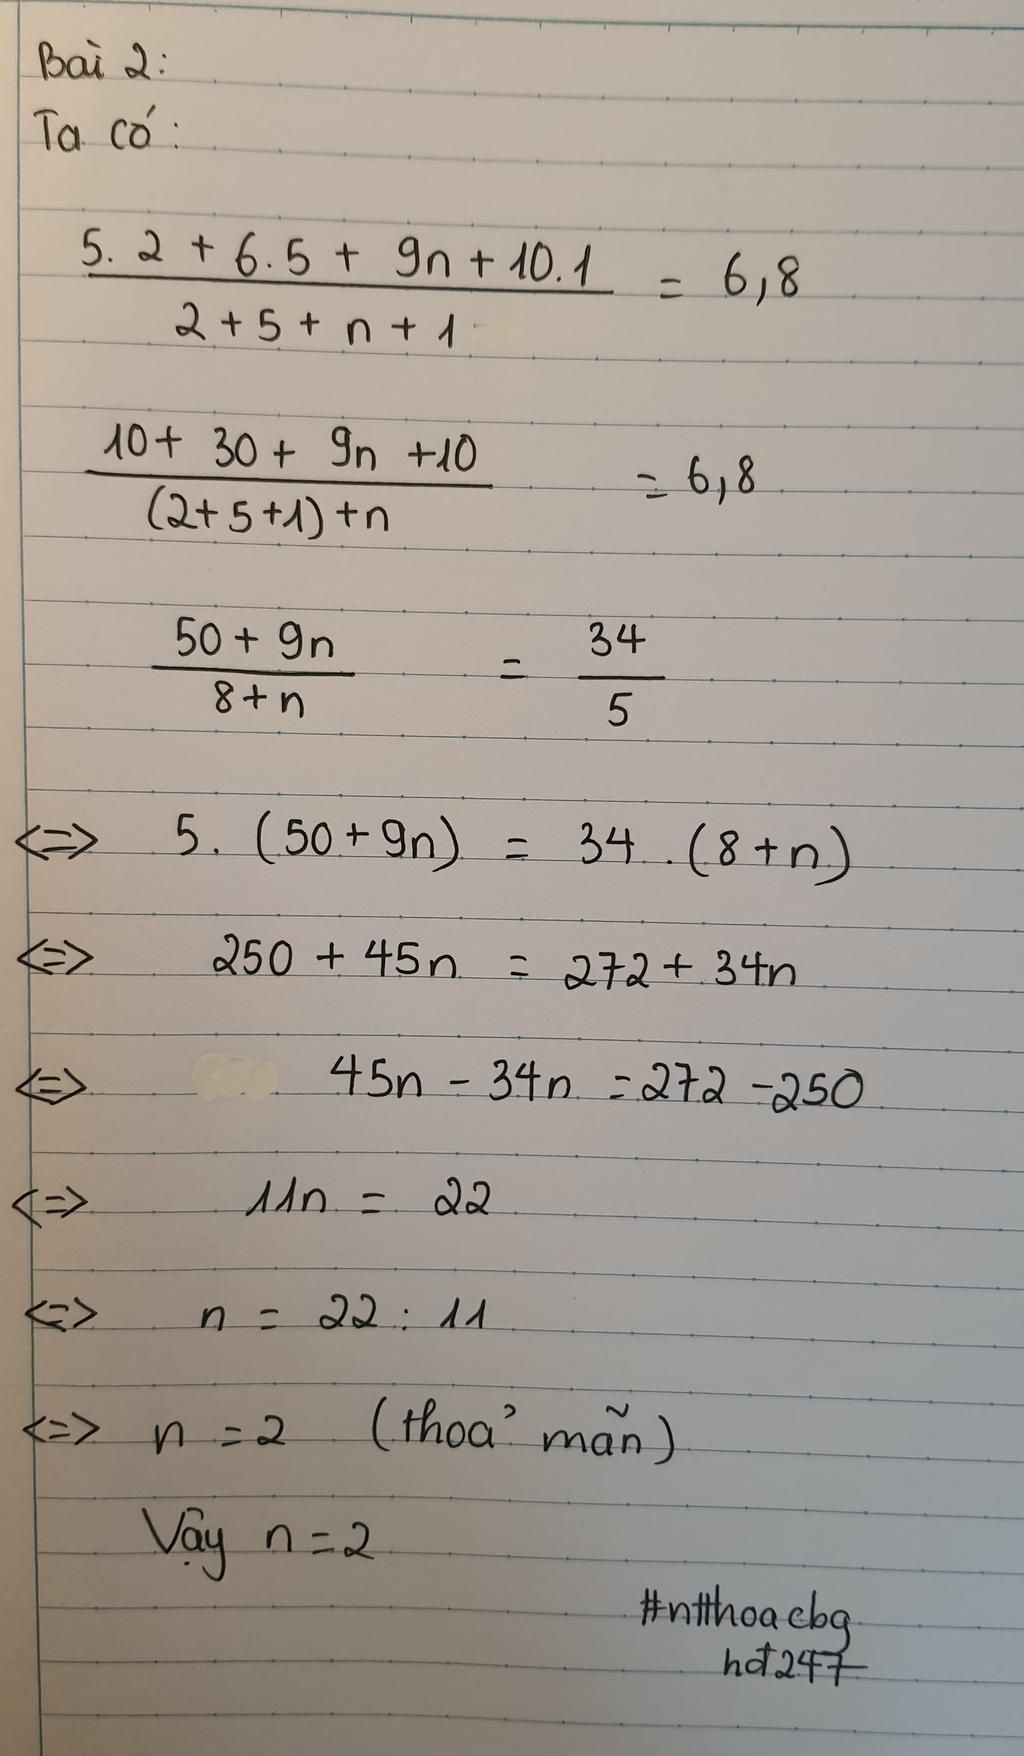 Bài 2:
Ta có:
5. 2 + 6.5 + 9n + 10.1 / 2 + 5 + n + 1 = 6,8
10 + 30 + 9n + 10 / (2+5+1) + n = 6,8
50 + 9n / 8 + n = 34 / 5
<=> 5. (50 + 9n) = 34 . (8 + n)
<=> 250 + 45n = 272 + 34n
<=> 45n - 34n = 272 - 250
<=> 11n = 22
<=> n = 22 : 11
<=> n = 2 (thoả mãn)
Vậy n = 2
#ntthoacbg
hdt247